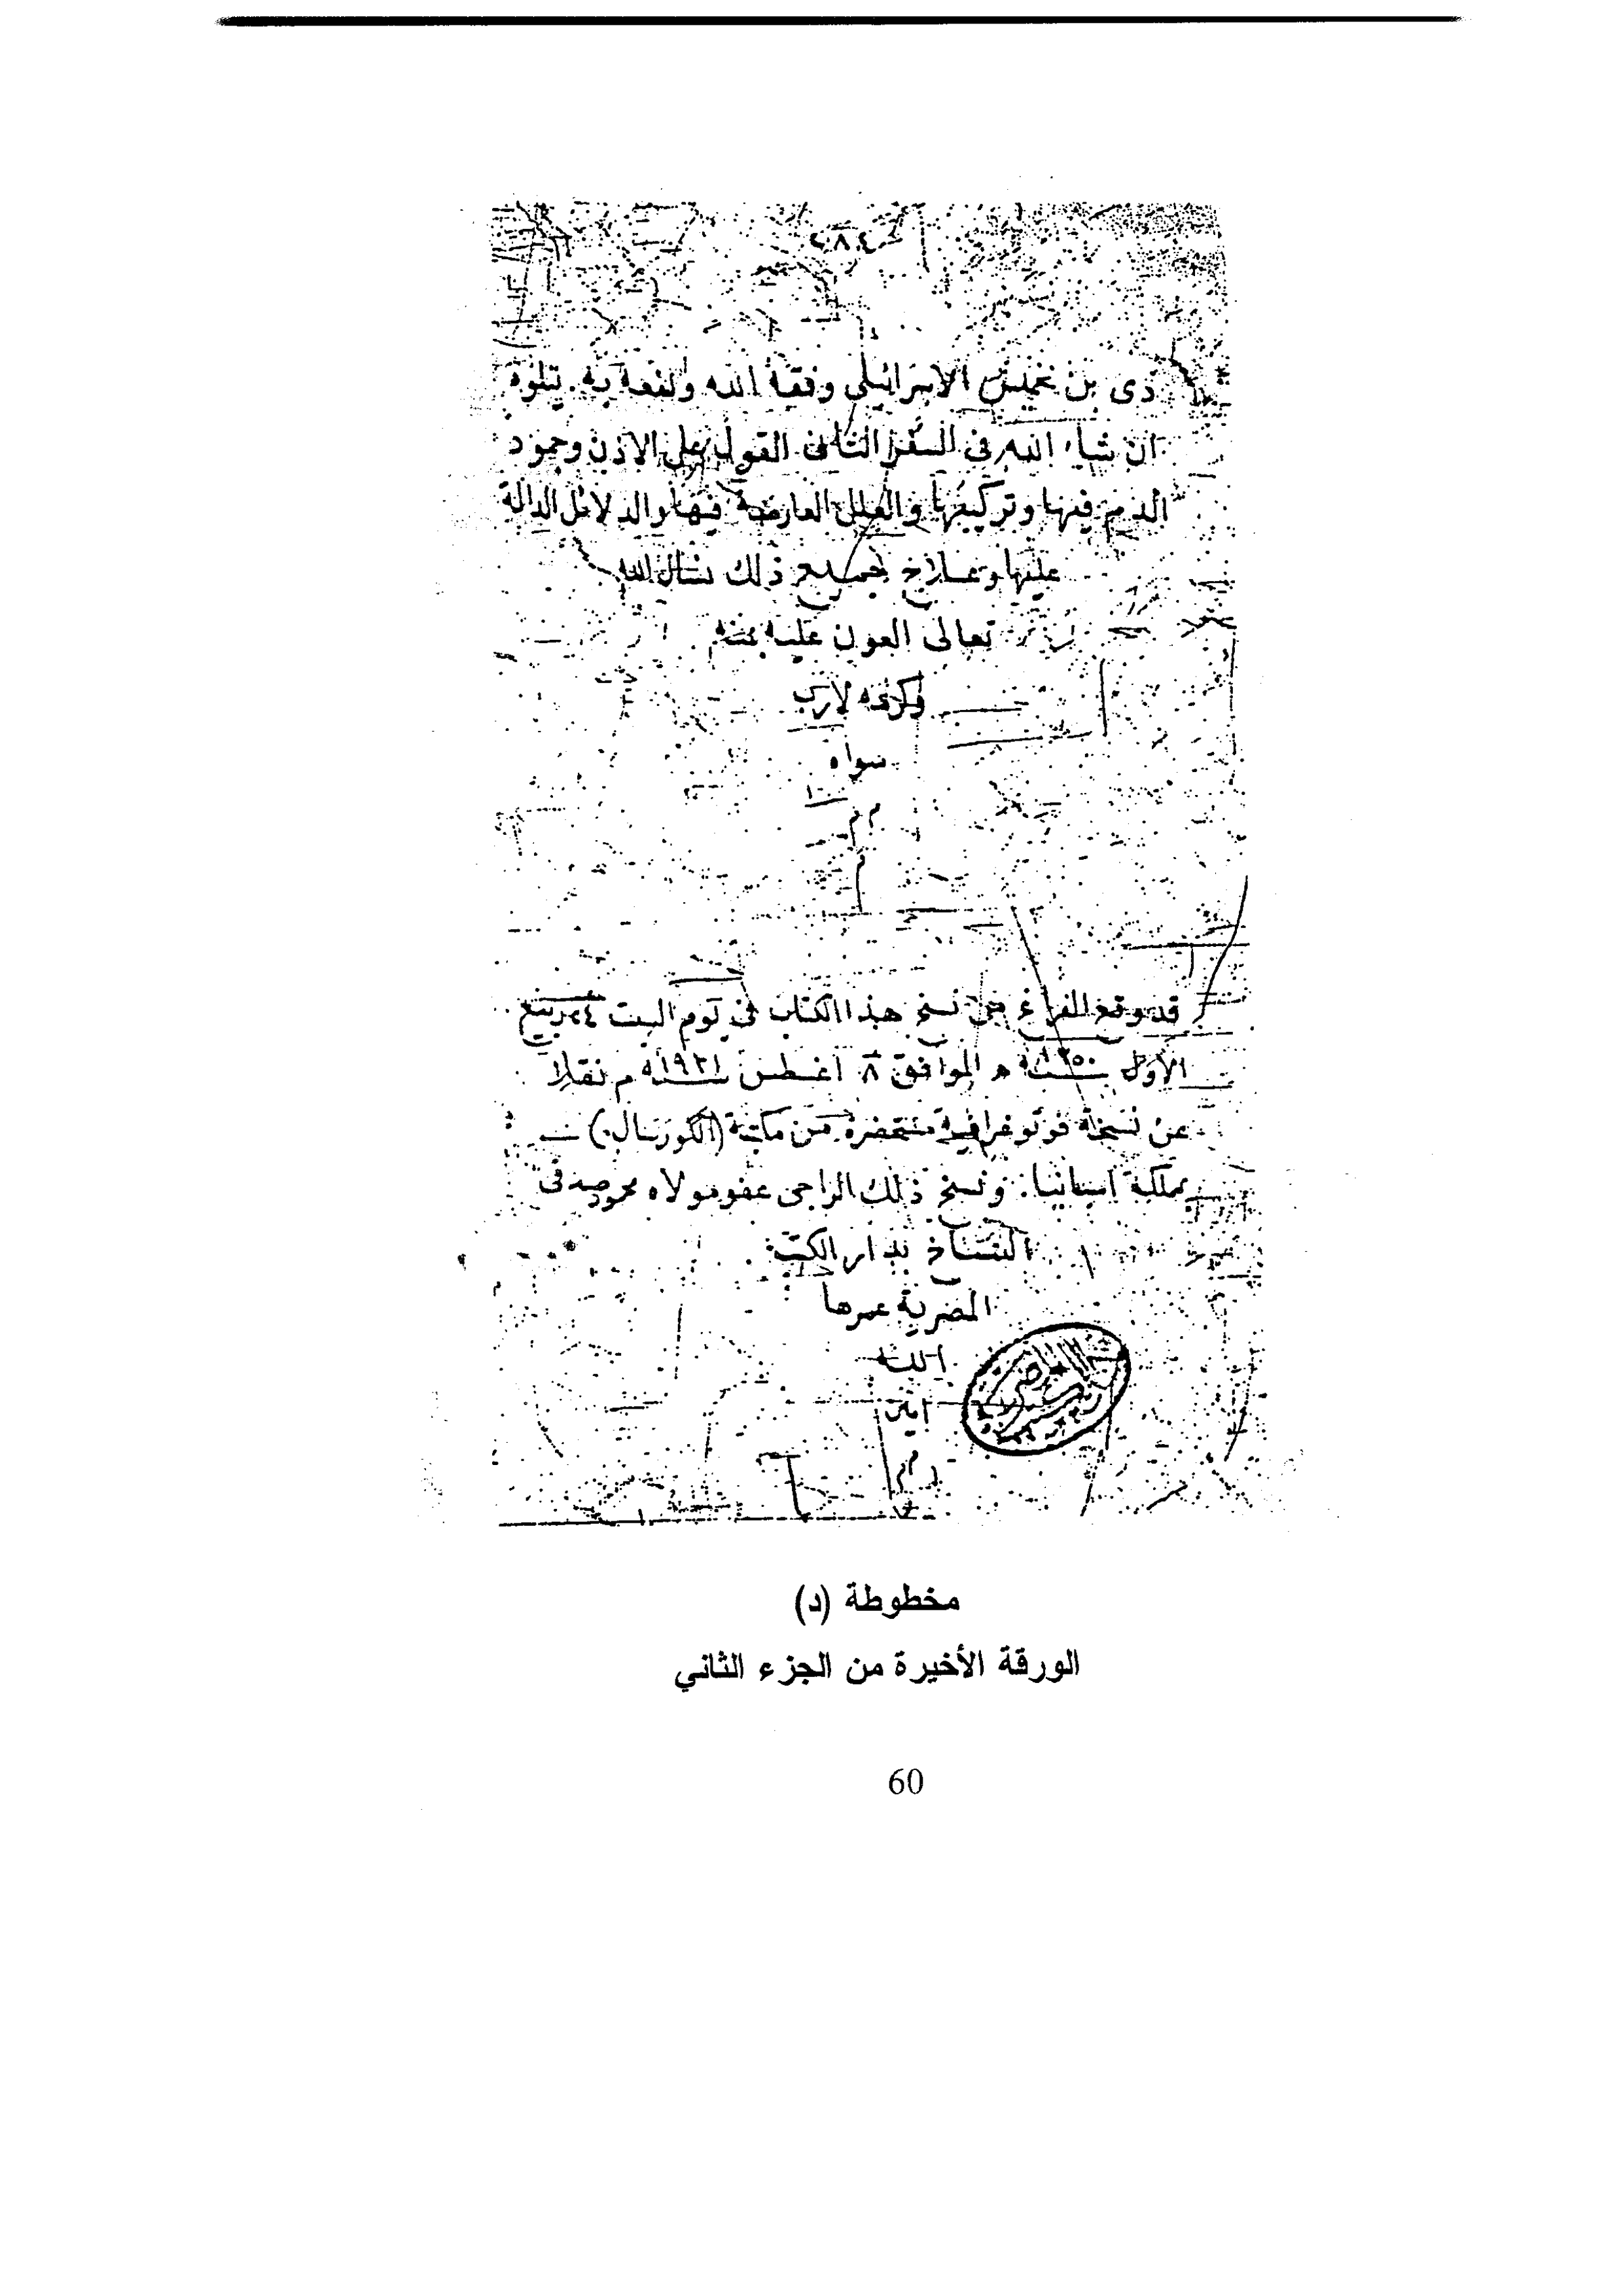 ٢٨٤
ذى بن نخميس الاسرائيلى وفقه الله ونفعه به. يتلوه
ان شاء الله فى السفر الثانى القول على الاذن وجمود
الدم فيها وتركيبها والعلل العارضة فيها والدلائل الدالة
عليها وعلاج جميع ذلك نسأل الله
تعالى العون عليه بمنه
وكرمه لا رب
سواه
م م
م
قد وقع الفراغ من نسخ هذا الكتاب فى يوم السبت ٢٤ ربيع
الأول سنة ١٣٥٠ ه الموافق ٨ أغسطس سنة ١٩٣١ م نقلا
عن نسخة فوتوغرافية مستحضرة من مكتبة (الكوريال)
بمملكة اسبانيا. ونسخ ذلك الراجى عفو مولاه محمود صدقى
النساخ بدار الكتب
المصرية عمرها
الله
آمين
م م
مخطوطة (د)
الورقة الأخيرة من الجزء الثاني
60